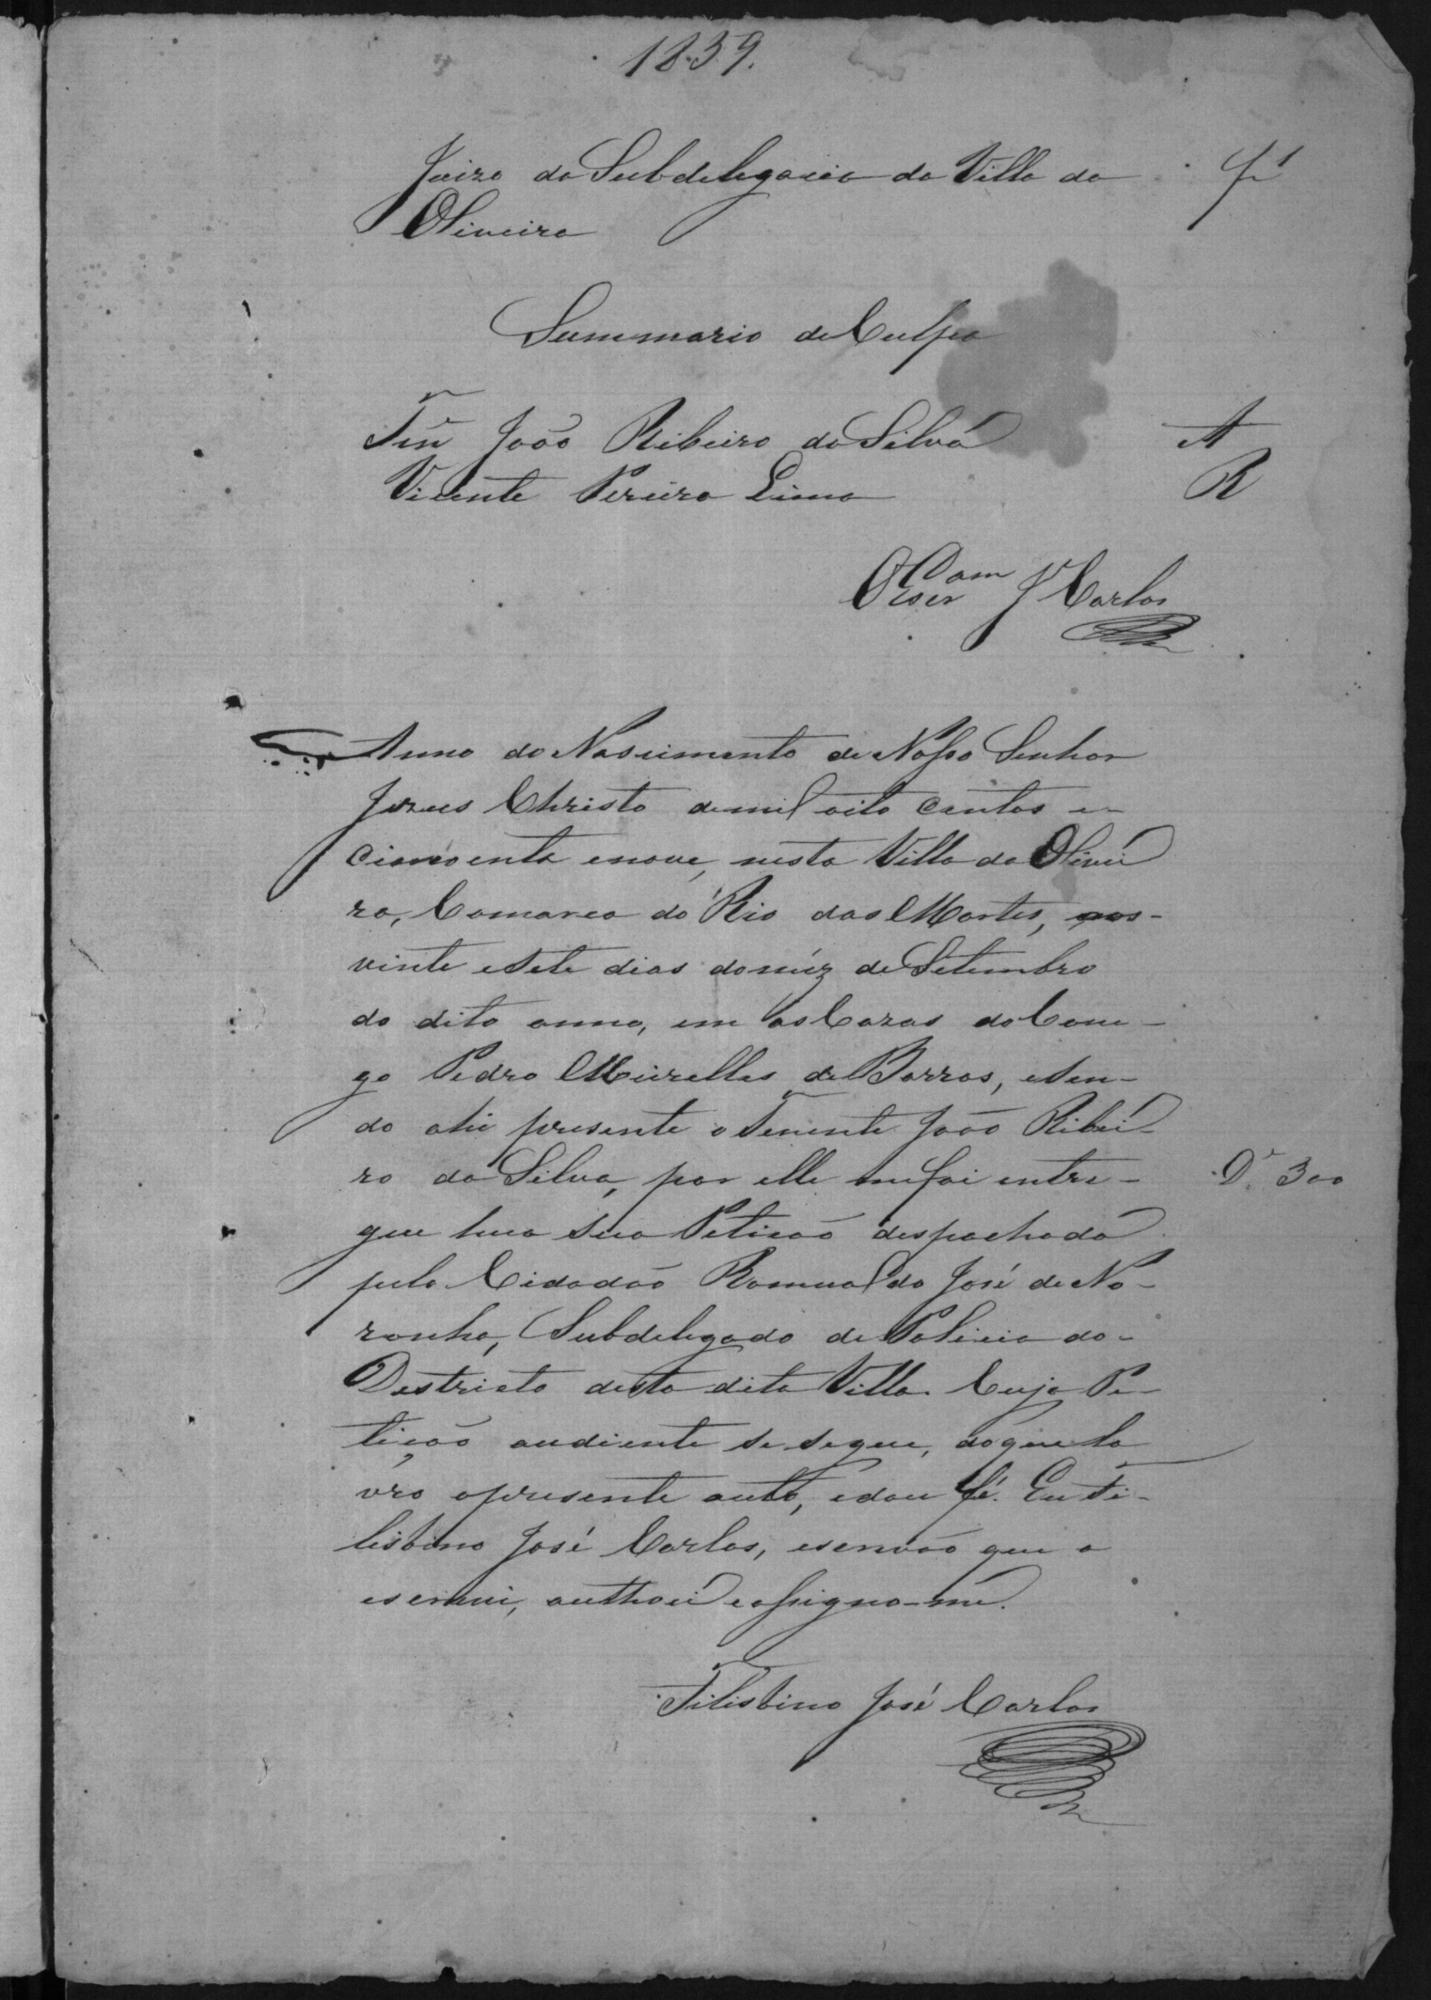 1859.
Juizo da Subdelegacia da Villa da
fl 1
Oliveira
Summario de Culpa
Tñe João Ribeiro da Silva A
Vicente Pereira Lima R
O Escr am J Carlos
Anno do Nascimento de Nosso Senhor
Jezus Christo de mil oito centos e
cincoenta e nove, nesta Villa da Olivei
ra, Comarca do Rio das Mortes, aos
vinte e sete dias do méz de Setembro
do dito anno, em as Cazas do Cone-
go Pedro Meirelles de Barros, e sen-
do ahi presente o Tenente João Ribei-
ro da Silva, por elle me foi entre-
D. 300
gue hua sua Peticão despachada
pelo Cidadão Romualdo José de No-
ronha, Subdelegado de Policia do
Destricto desta dita Villa. Cuja Pe-
tição audiente se segue, do que la
vro o presente auto, e dou fé. Eu Ti-
listino José Carlos, escrivão que o
escrevi, authoei e assigno-me.
Tilistino José Carlos